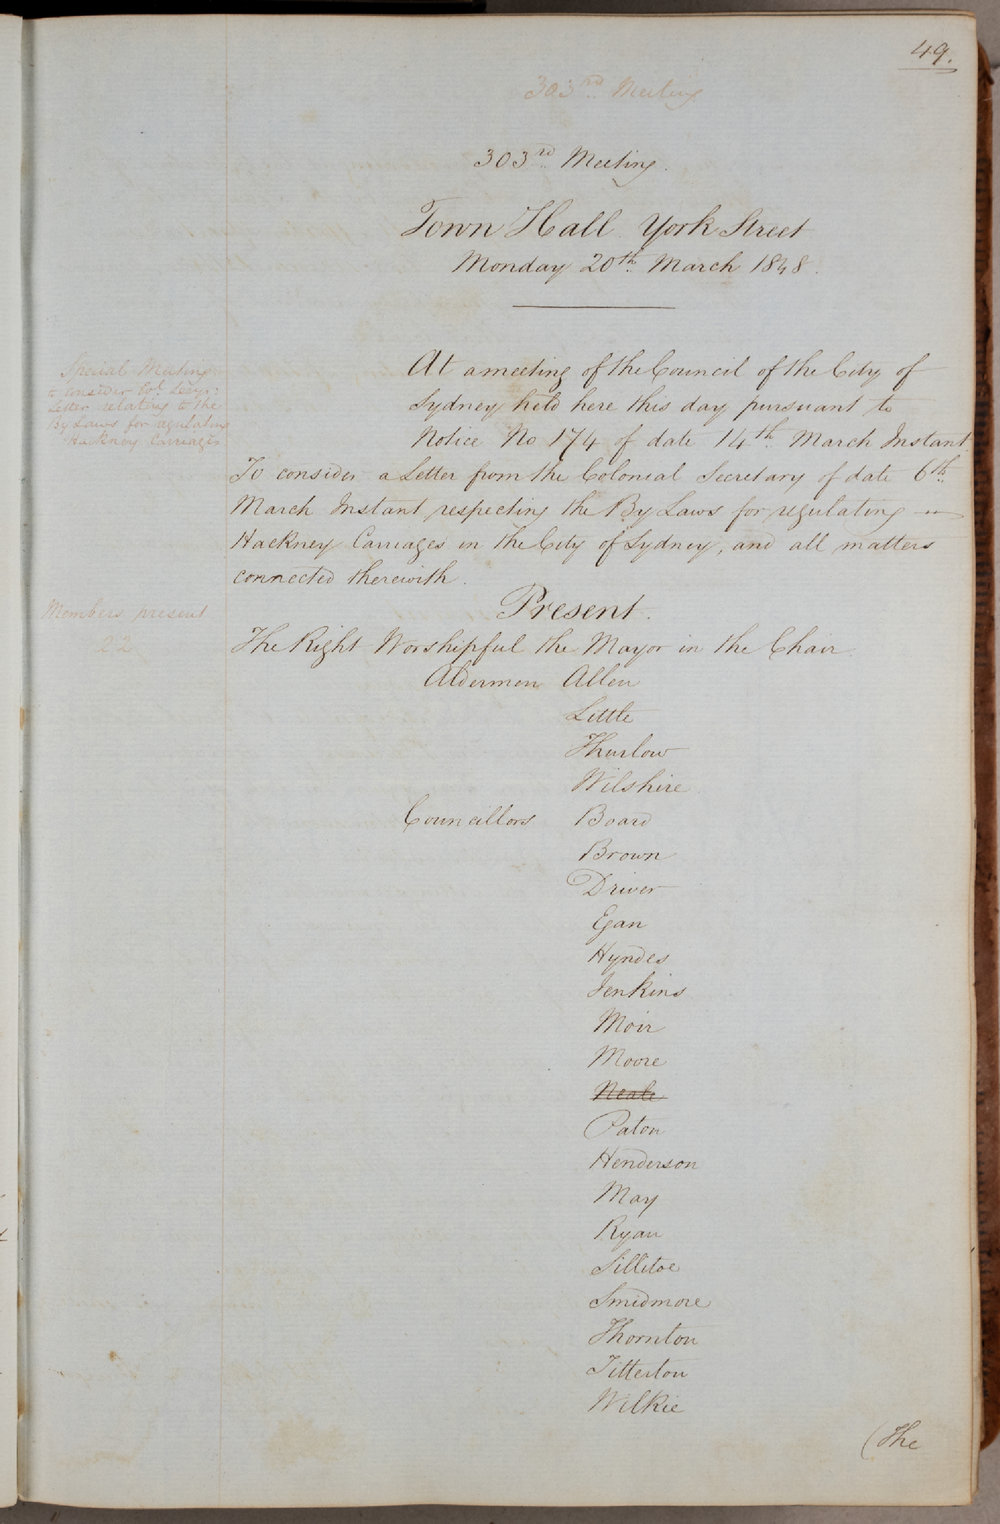 49.
303rd Meeting
303rd Meeting.
Town Hall York Street
Monday 20th March 1848.
Special Meeting
to consider Col. Secy's
Letter relating to the
By Laws for regulating
Hackney Carriages
At a meeting of the Council of the City of
Sydney held here this day pursuant to
Notice No 174 of date 14th March Instant
To consider a Letter from the Colonial Secretary of date 6th
March Instant respecting the By Laws for regulating
Hackney Carriages in the City of Sydney, and all matters
connected therewith.
Members present
22
Present.
The Right Worshipful the Mayor in the Chair.
Aldermen Allen
Little
Thurlow
Wilshire
Councillors Board
Brown
Driver
Egan
Hyndes
Jenkins
Moir
Moore
Neale
Paton
Henderson
May
Ryan
Sillitoe
Smidmore
Thornton
Titterton
Wilkie
(The